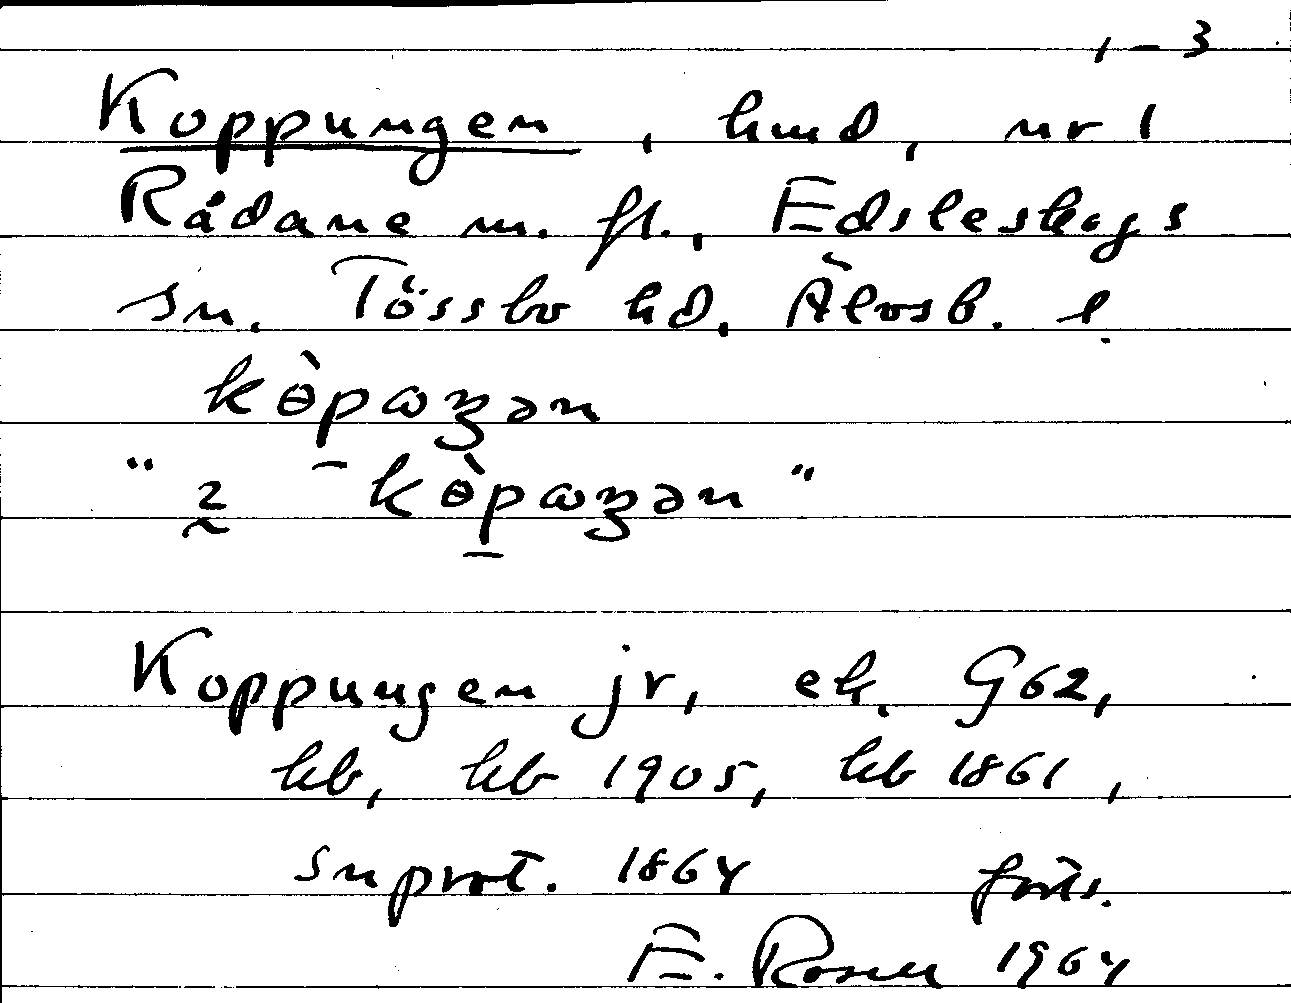 1–3
Koppungen, hmd, nr 1
Rådane m. fl., Edsleskogs
sn. Tössbo hd. Älvsb. l.
kɵ̀pωŋən
" 2 – kɵ̀pωŋən "
Koppungen jr, ek. G62,
hb, hb 1905, hb 1861,
snprot. 1864 forts.
E. Rosell 1964